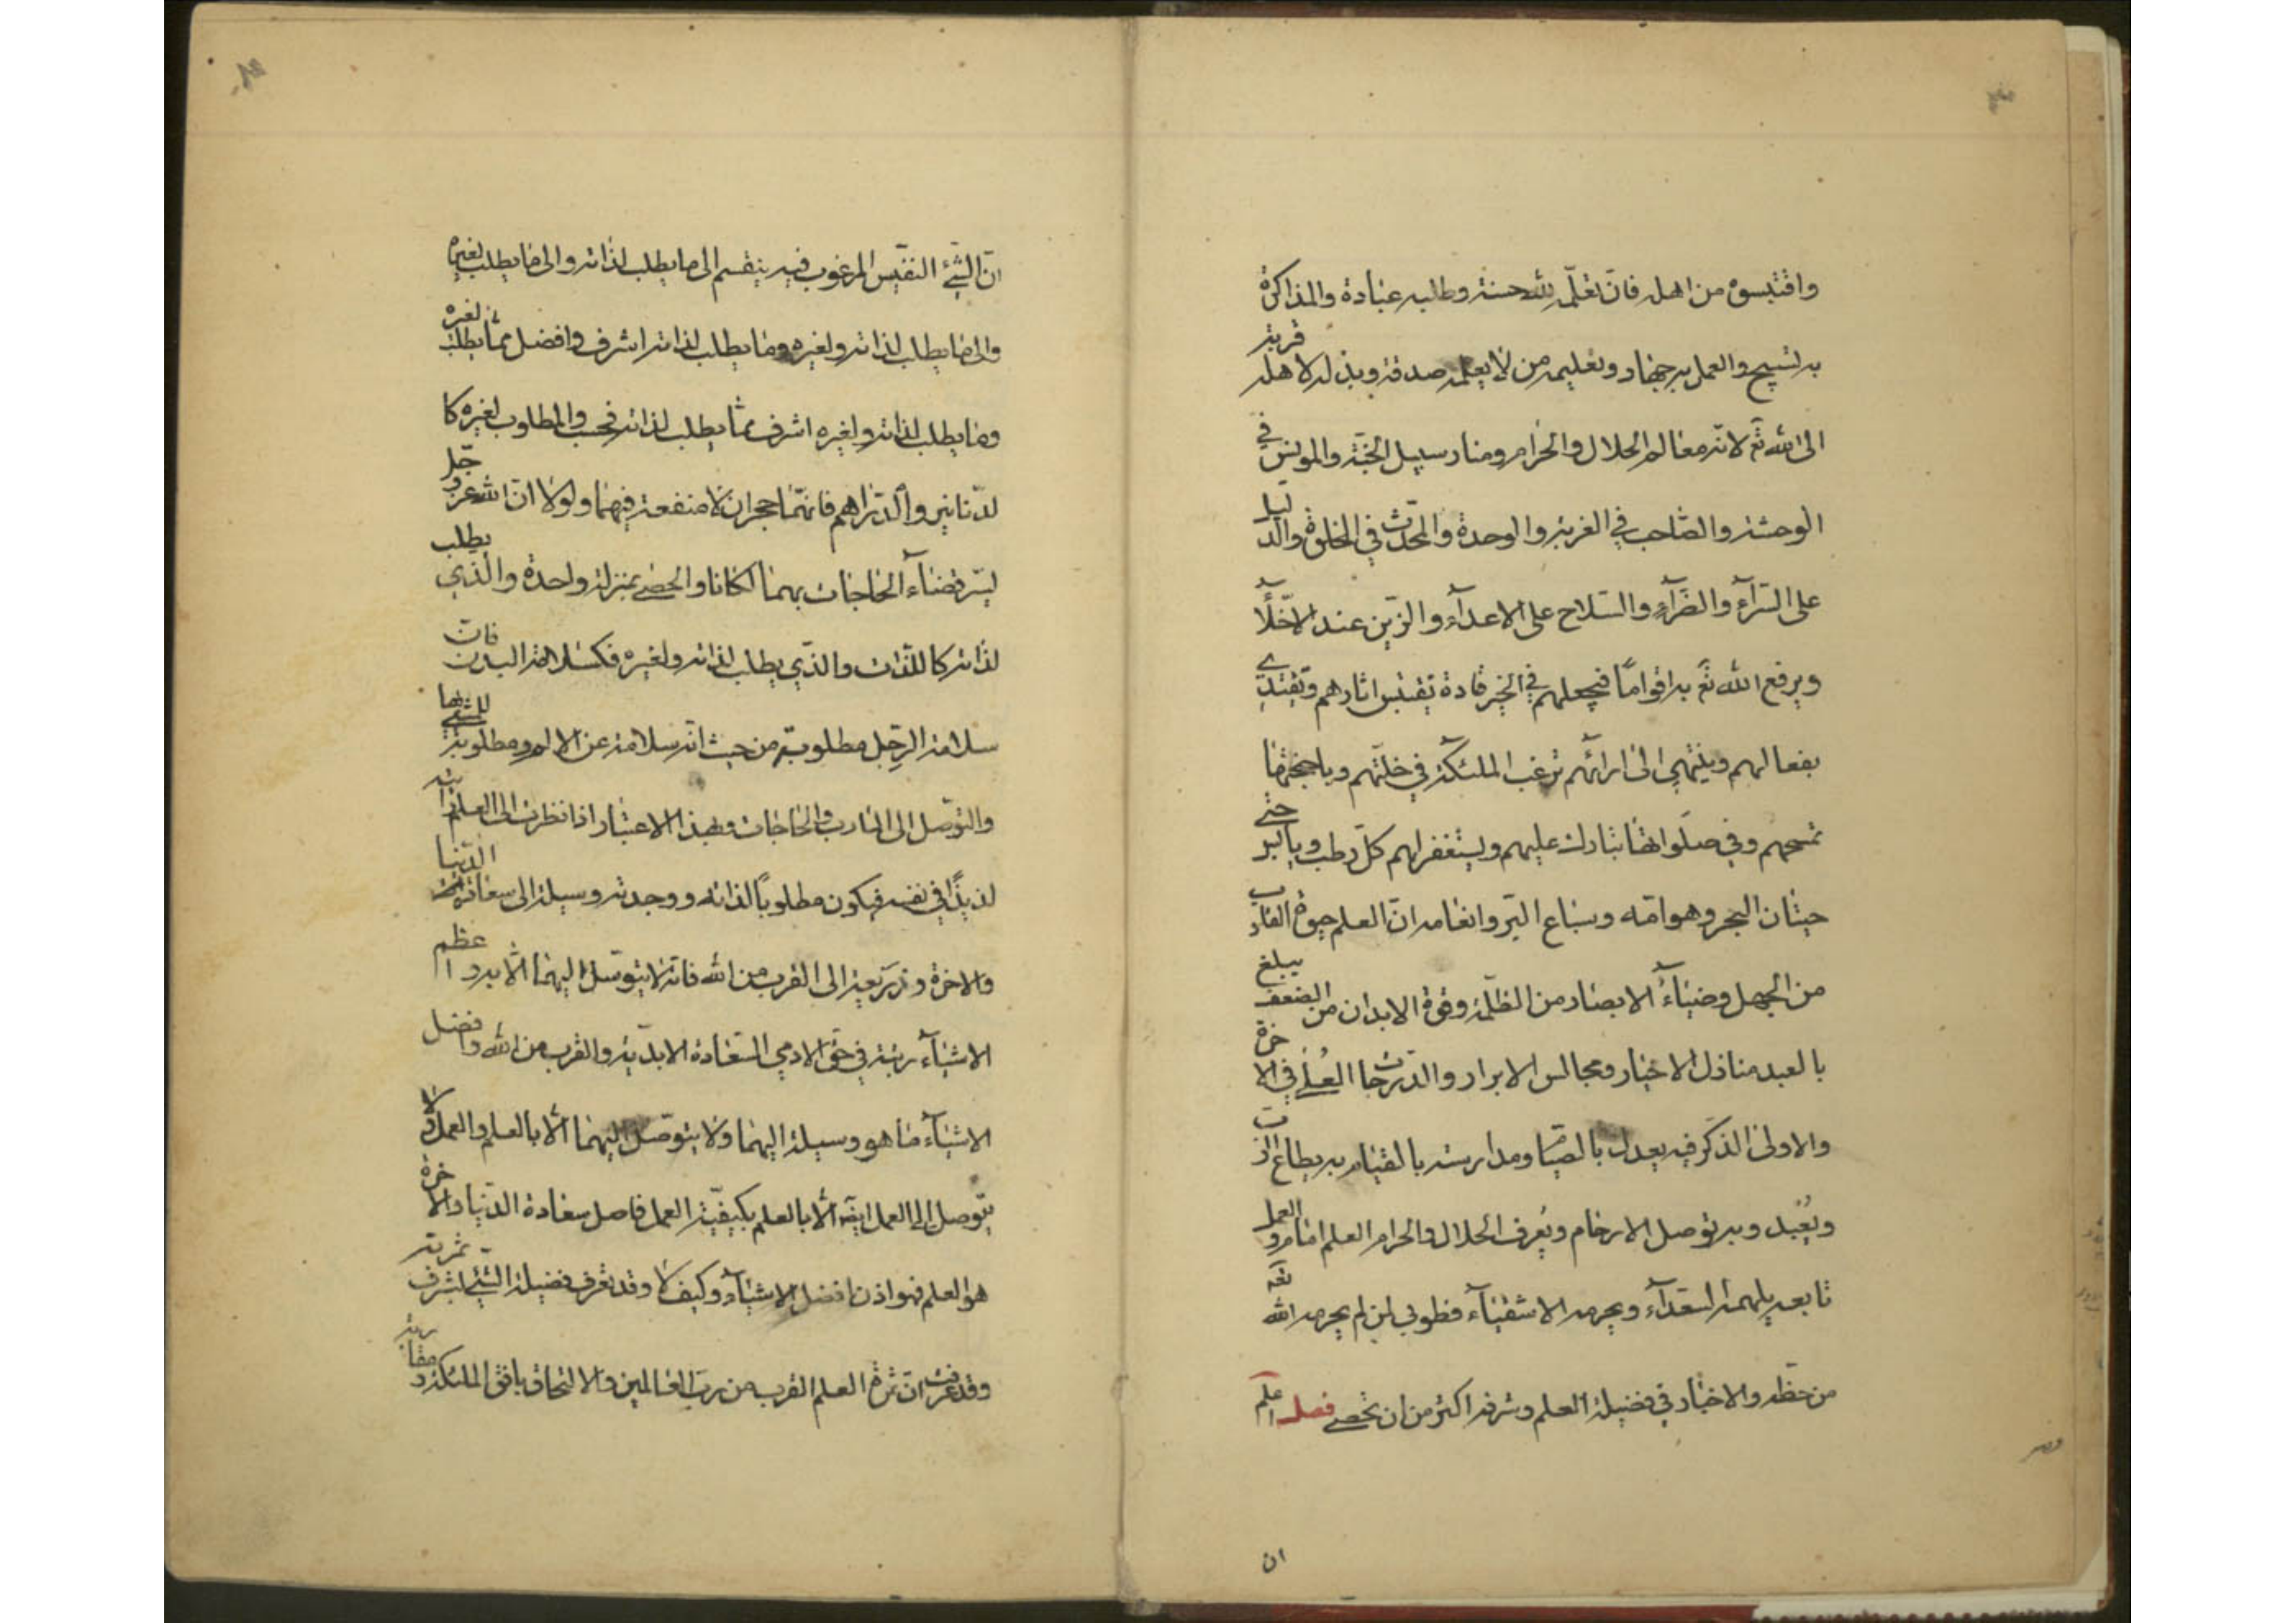 واقتبسوه من اهله فان تعلّمه لله حسنة وطلبه عبادة والمذاكرة
به تسبيح والعمل به جهاد وتعليمه من لا يعلمه صدقة وبذله لاهله قربة
الى الله تع لانه معالم الحلال والحرام ومنار سبيل الجنة والمونس في
الوحشة والصاحب في الغربة والوحدة والمحدّث في الخلوة والدليل
على السرّآء والضرّآء والسلاح على الاعدآء والزين عند الاخلّآء
ويرفع الله تع به اقواما فيجعلهم في الخير قادة تقتبس اثارهم وتقتدي
بفعالهم وينتهي الى ارائهم ترغب الملئكة في خلّتهم وباجنحتها
تمسحهم وفي صلواتها تبارك عليهم ويستغفر لهم كل رطب ويابس حتى
حيتان البحر وهوامه وسباع البر وانعامه ان العلم حيوة القلوب
من الجهل وضيآء الابصار من الظلمة وقوة الابدان من الضعف يبلغ
بالعبد منازل الاخيار ومجالس الابرار والدرجات العلى في الاخرة
والاولى الذكر فيه يعدل بالصيام ومدارسته بالقيام به يطاع الرب
ويُعبد وبه توصل الارحام ويُعرف الحلال والحرام العلم امام والعمل
تابعه يلهمه السعدآء ويحرمه الاشقيآء فطوبى لمن لم يحرمه الله تع
من حظه والاخبار في فضيلة العلم وشرفه اكثر من ان تحصى فصل اعلم
ان
انّ الشّئ النفيس المرغوب فيه ينقسم الى ما يطلب لذاته والى ما يطلب لغيره
والى ما يطلب لذاته ولغيره وما يطلب لذاته اشرف وافضل ممّا يطلب لغيره
وما يطلب لذاته ولغيره اشرف ممّا يطلب لذاته فحسب والمطلوب لغيره كا
لدّنانير والدّراهم فانهما حجران لا منفعة فيهما ولولا ان الله عز وجل
يسّر قضآء الحاجات بهما لكانا والحصى بمنزلة واحدة والذي يطلب
لذاته كاللذات والذي يطلب لذاته ولغيره فكسلامة البدن فان
سلامة الرجل مطلوبة من حيث انه سلامة عن الالم ومطلوبة للمشي بها
والتوصل الى المارب والحاجات وبهذا الاعتبار اذا نظرت الى العلم رايته
لذيذًا في نفسه فيكون مطلوبًا لذاته ووجدته وسيلة الى سعادة الدنيا
والاخرة وذريعة الى القرب من الله فانه لا يتوصل اليهما الّا به واعظم
الاشيآء رتبة في حق الادمي السعادة الابديّة والقرب من الله وافضل
الاشيآء ما هو وسيلة اليهما ولا يتوصل اليهما الّا بالعلم والعمل ولا
يتوصل الى العمل ايضا الّا بالعلم بكيفيّة العمل فاصل سعادة الدّنيا والاخرة
هو العلم فهو اذن افضل الاشيآء وكيف لا وقد تعرف فضيلة الشئ بشرف ثمرته
وقد عرفت ان ثمرة العلم القرب من رب العالمين والالتحاق بافق الملئكة ومقاربة